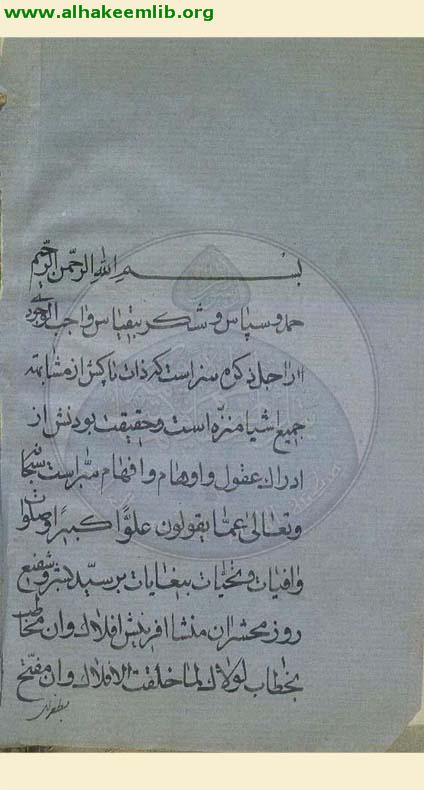 www.alhakeemlib.org
بسم الله الرحمن الرحيم
حمد وسپاس وشكر بيقياس واجب الوجودي
را جل ذكره سزاست كه ذات پاكش از مشابهة
جميع اشيا منزه است وحقيقت بودنش از
ادراك عقول واوهام وافهام مبراست سبحانه
وتعالى عما يقولون علوا كبيرا وصلوات
وافيات وتحيات بيغايات بر سيد بشر وشفيع
روز محشر ان منشا افرينش افلاك وان مخاطب
بخطاب لولاك لما خلقت الافلاك وان مفتح